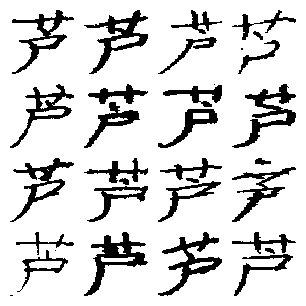 芦芦芦芦
芦芦芦芦
芦芦芦芦
芦芦芦芦